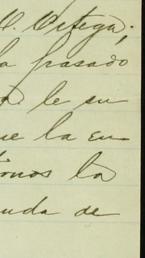 O. Ortega.
a pasado
a le su
ue la en-
ionos la
uda de